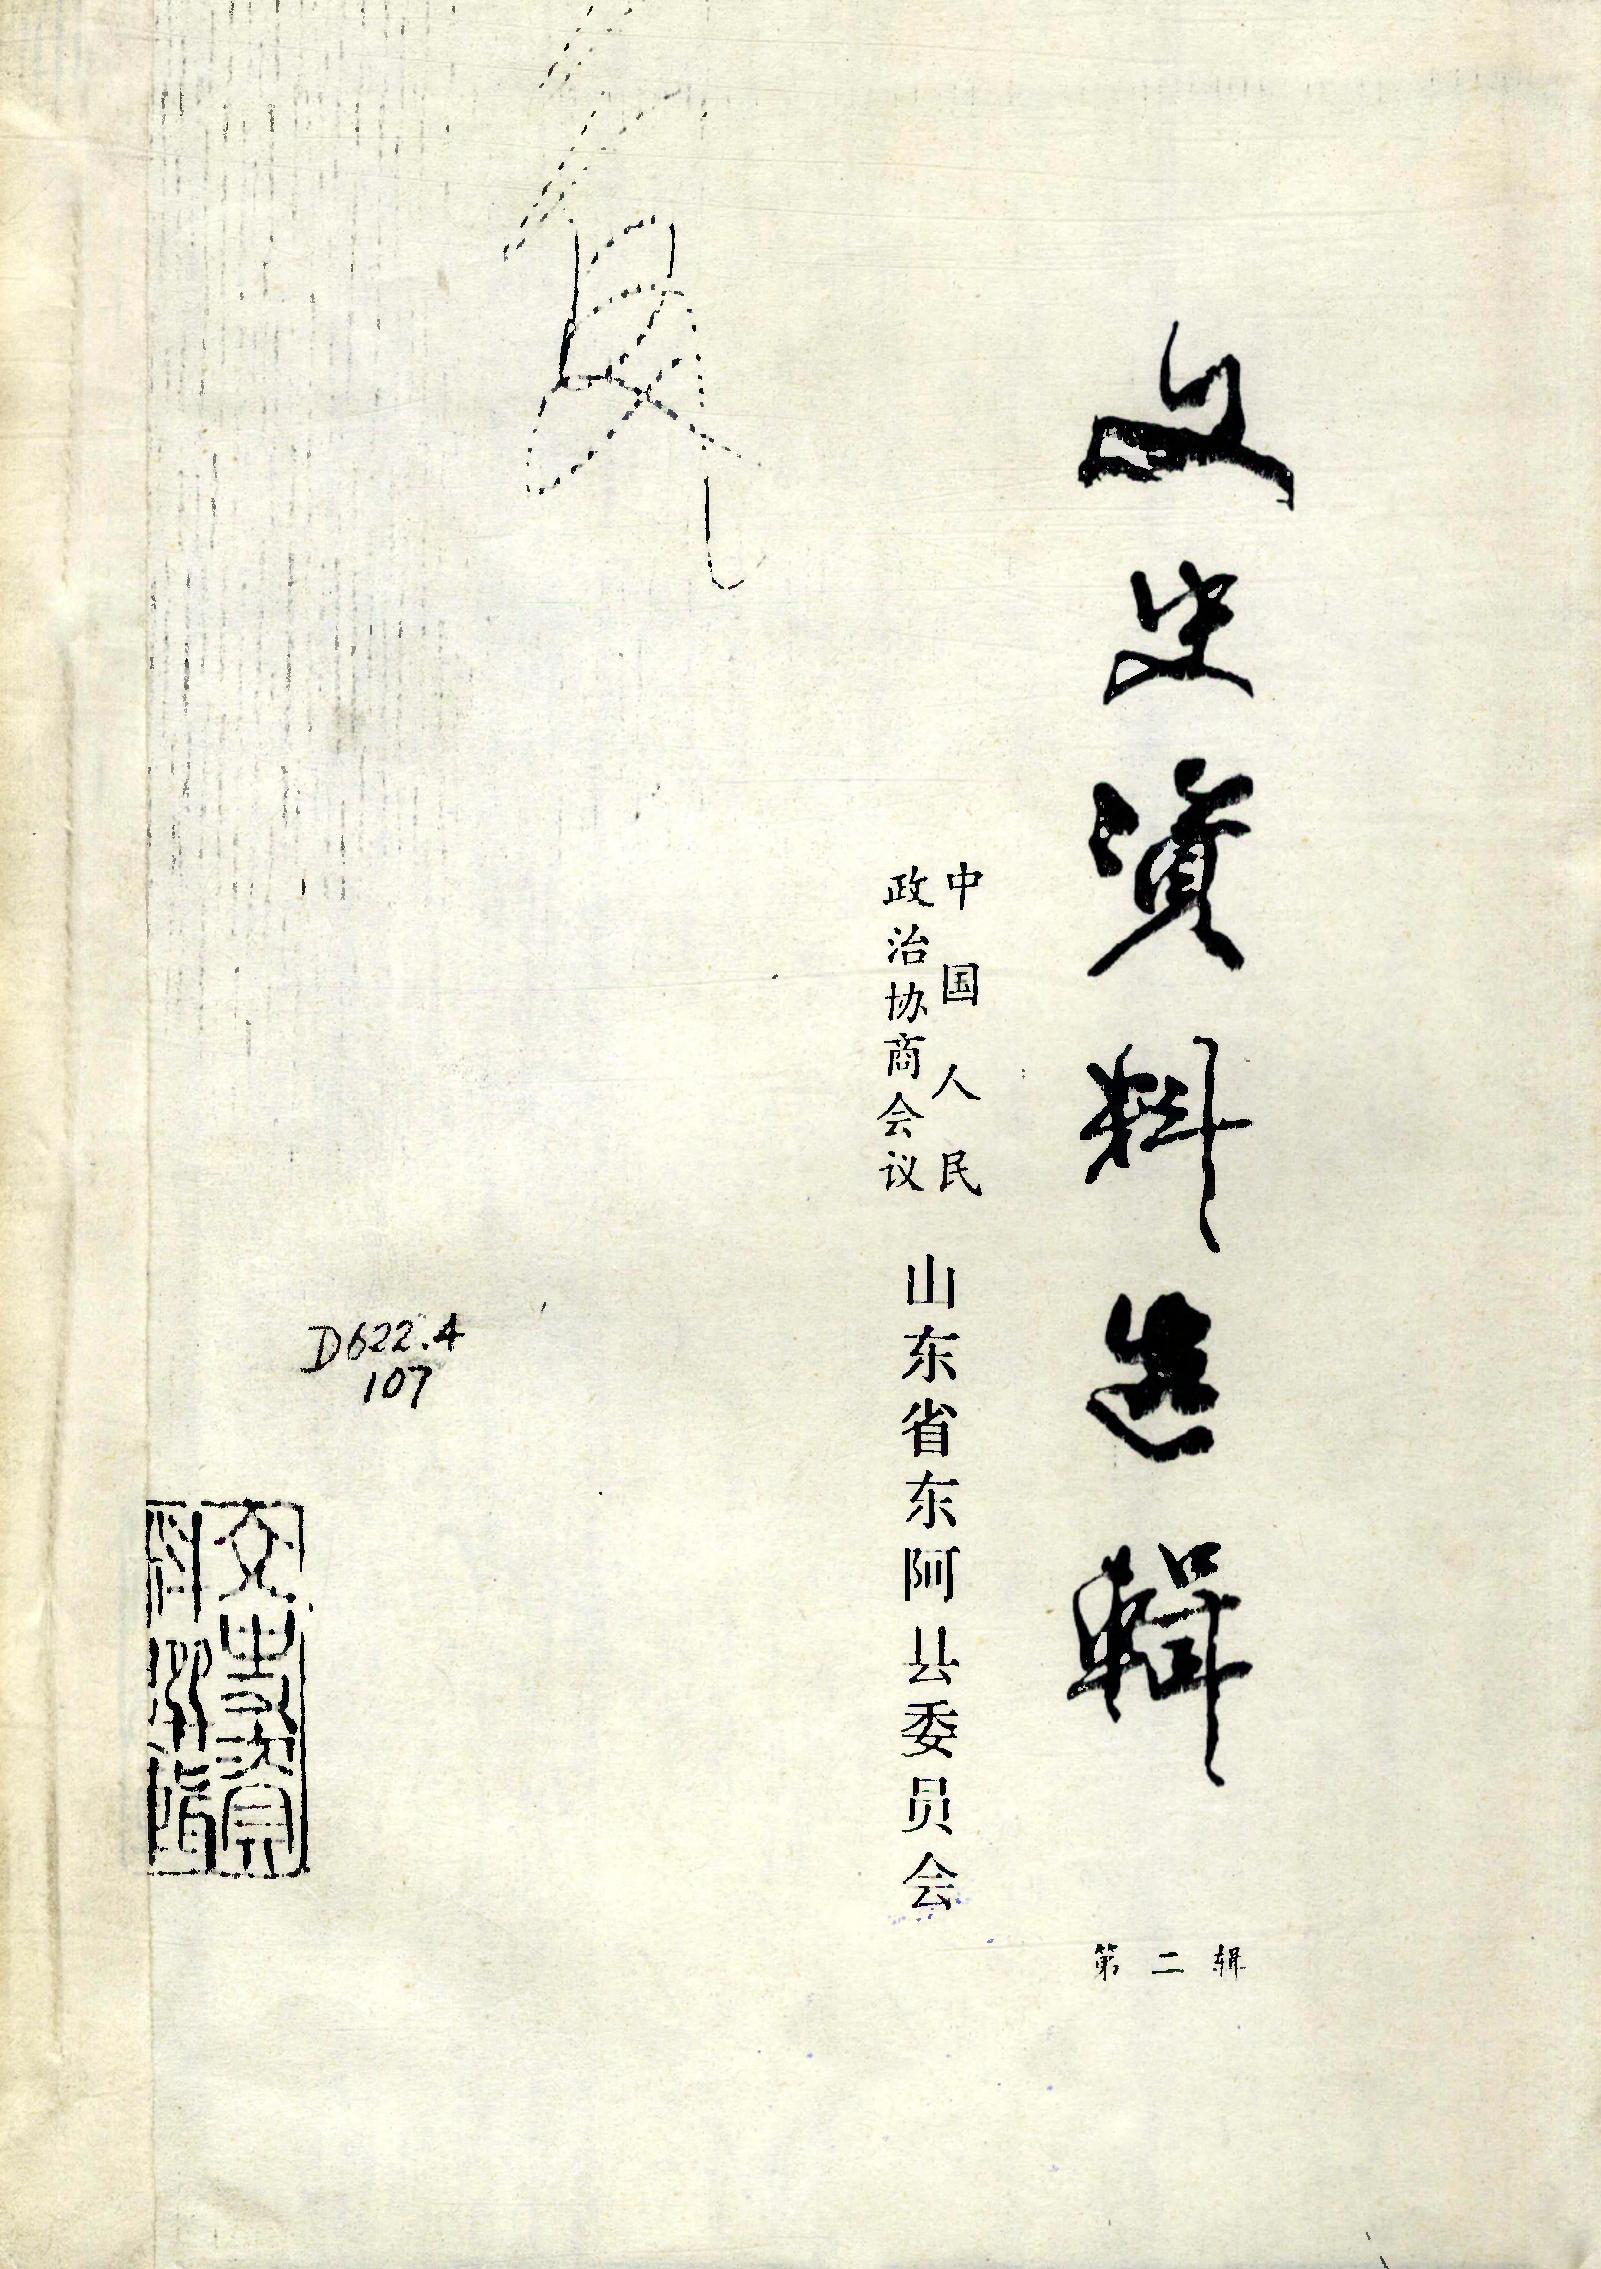 文史資料选輯
中国人民
政治协商会议
山东省东阿县委员会
第二辑
D622.4
107
文史資